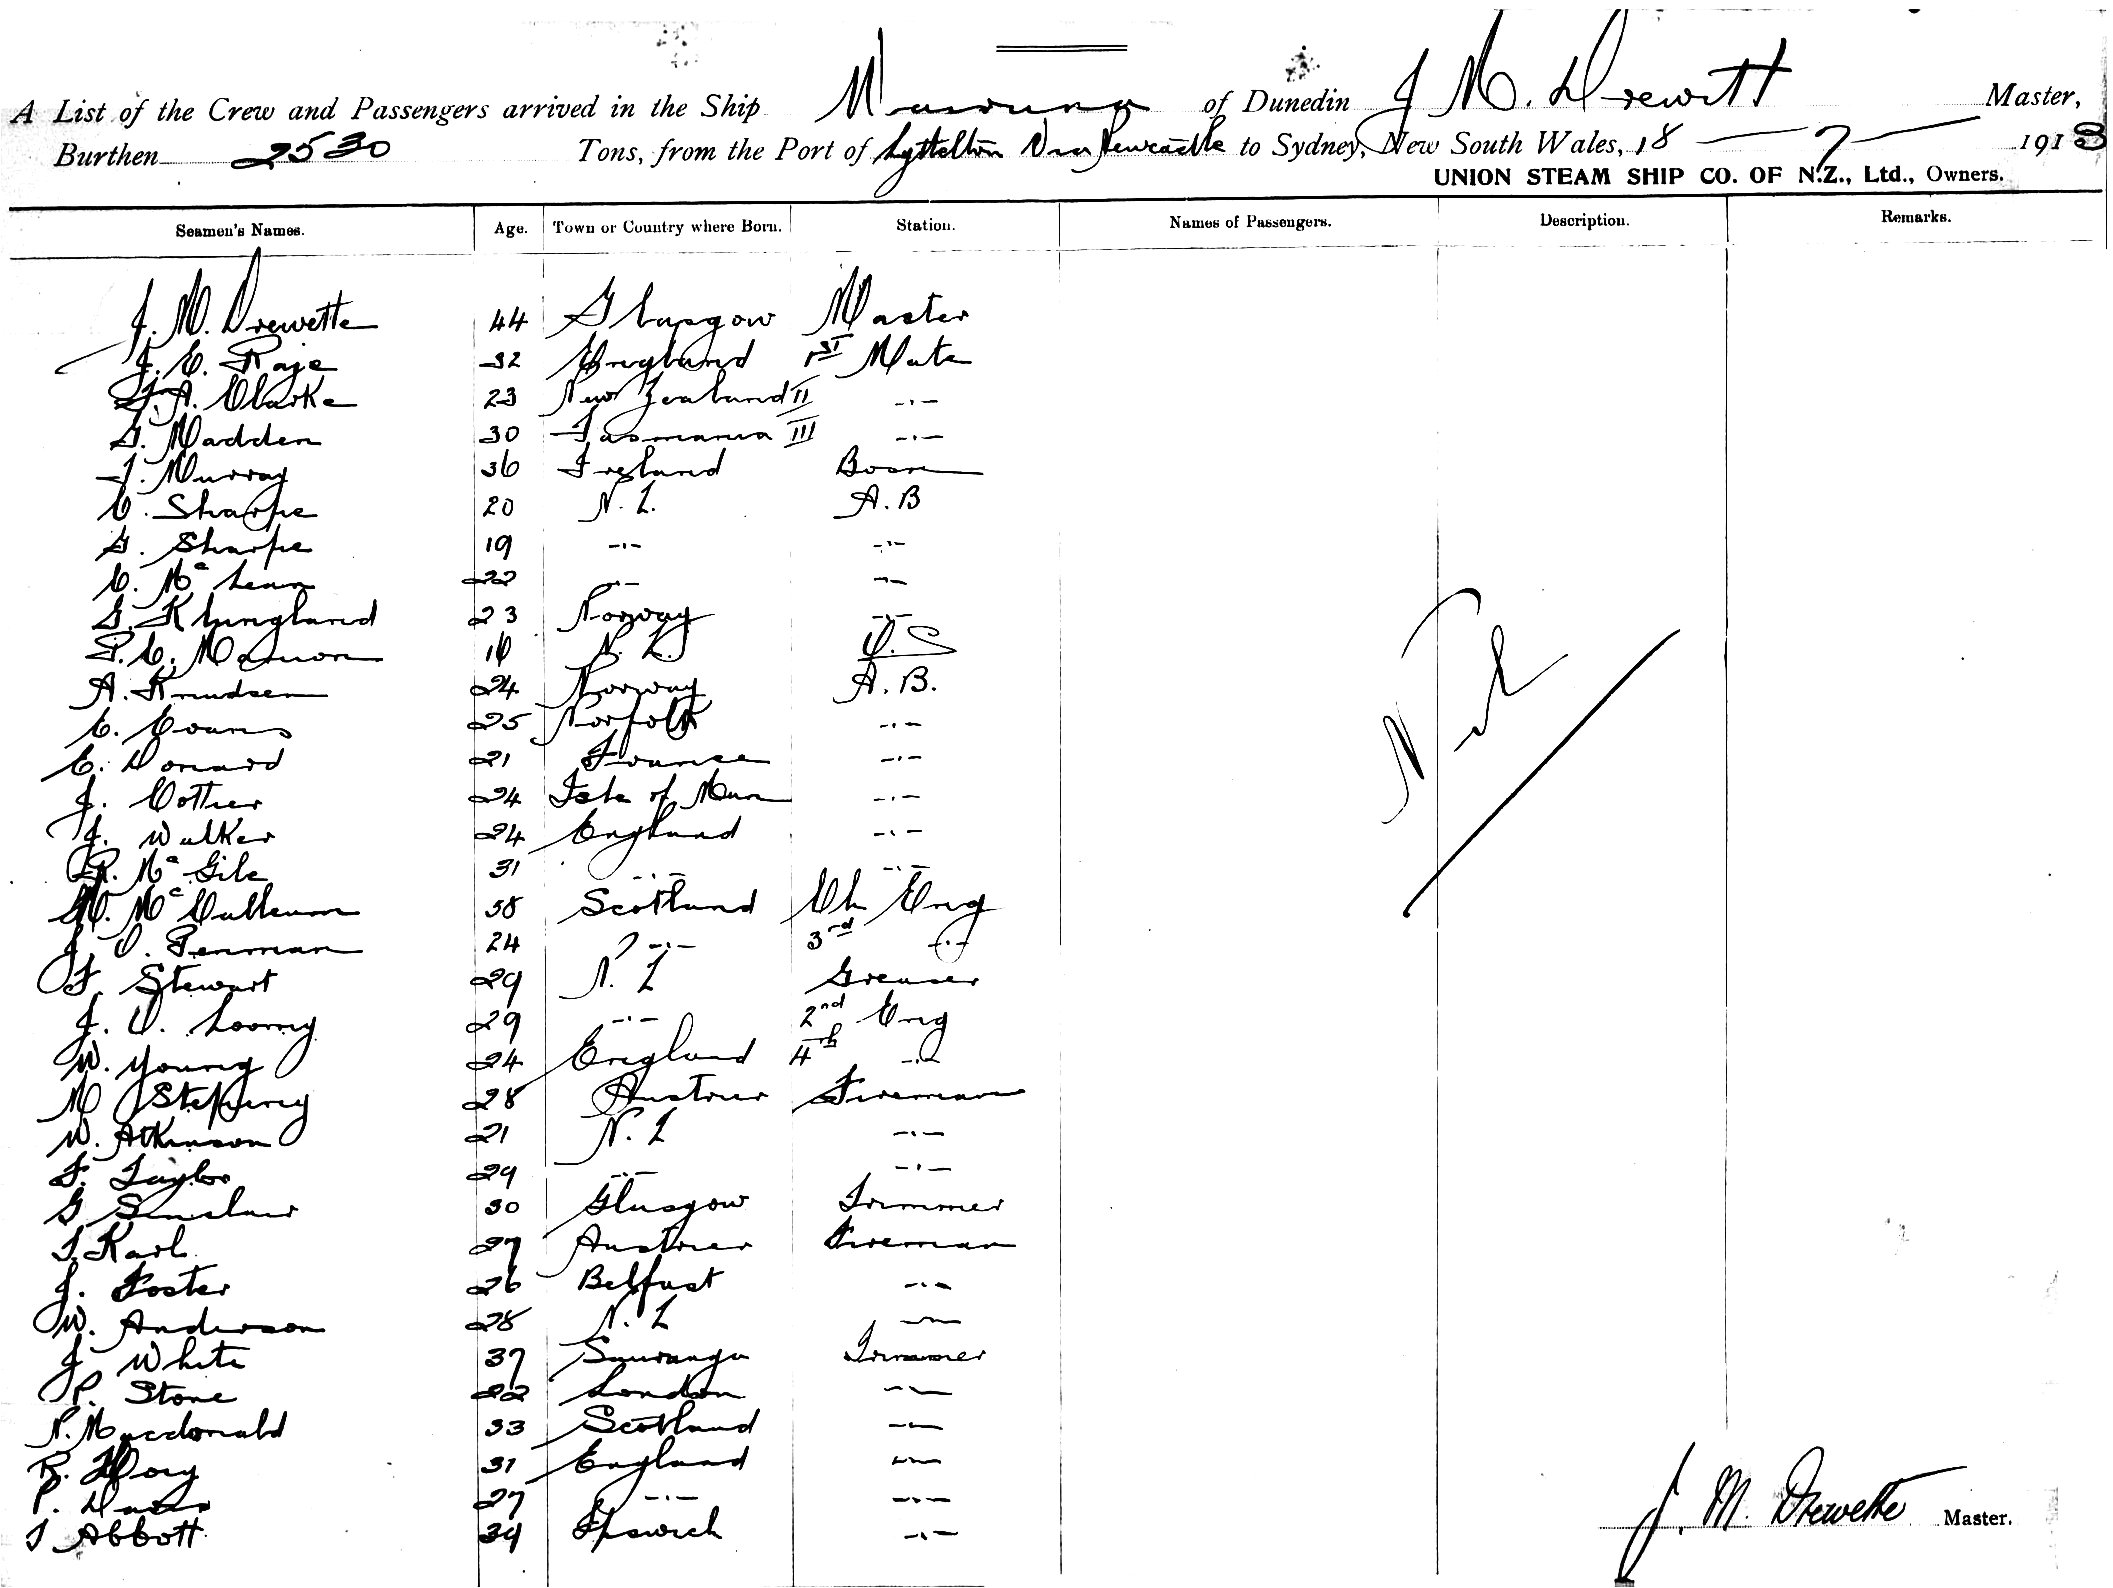 A List of the Crew and Passengers arrived in the Ship of Dunedin J M. Drewitt Master,
Burthen 2530 Tons, from the Port of Lyttelton Via Newcastle to Sydney, New South Wales, 18 - 7 - 1913
UNION STEAM SHIP CO. OF N.Z., Ltd., Owners.
Seamen's Names. Age. Town or Country where Born. Station. Names of Passengers. Description. Remarks.
J. M. Drewette 44 Glasgow Master
J. E. Raje 32 England 1ST Mate
A. Clarke 23 New Zealand II -·-
G. Madden 30 Tasmania III -·-
J. Murray 36 Ireland Bosn
C. Sharpe 20 N. Z. A. B
G. Sharpe 19 -·- -·-
C. Mc Lean 22 -·- -·-
G. Klungland 23 Norway -·-
P. C. 16 N. Z. O. S
A. Knudsen 24 Norway A. B.
E. Evans 25 Norfolk -·-
E. Donard 21 France -·-
J. Cottier 24 Isle of Man -·-
J. Walker 24 England -·-
R. Mc Gile 31 -·- -·-
Mc Calleum 38 Scotland Ch Eng
J. O. Penman 24 -·- 3rd -·-
F. Stewart 29 N. Z Greaser
J. O. Loomy 29 -·- 2nd Eng
W. Young 24 England 4th -·-
M 28 Austrier Fireman
W. Atkinson 21 N. Z -·-
F. Taylor 29 -·- -·-
G Sinclair 30 Glasgow Trimmer
T. Karl 27 Austrier Fireman
J. Foster 26 Belfast -·-
W. Anderson 28 N. Z -·-
J White 37 Trimmer
P. Stone 22 London -·-
N. Macdonald 33 Scotland -·-
R. 31 England -·-
P. 27 -·- -·-
T Abbott 34 Ipswich -·-
Nil
J. M. Drewette Master.